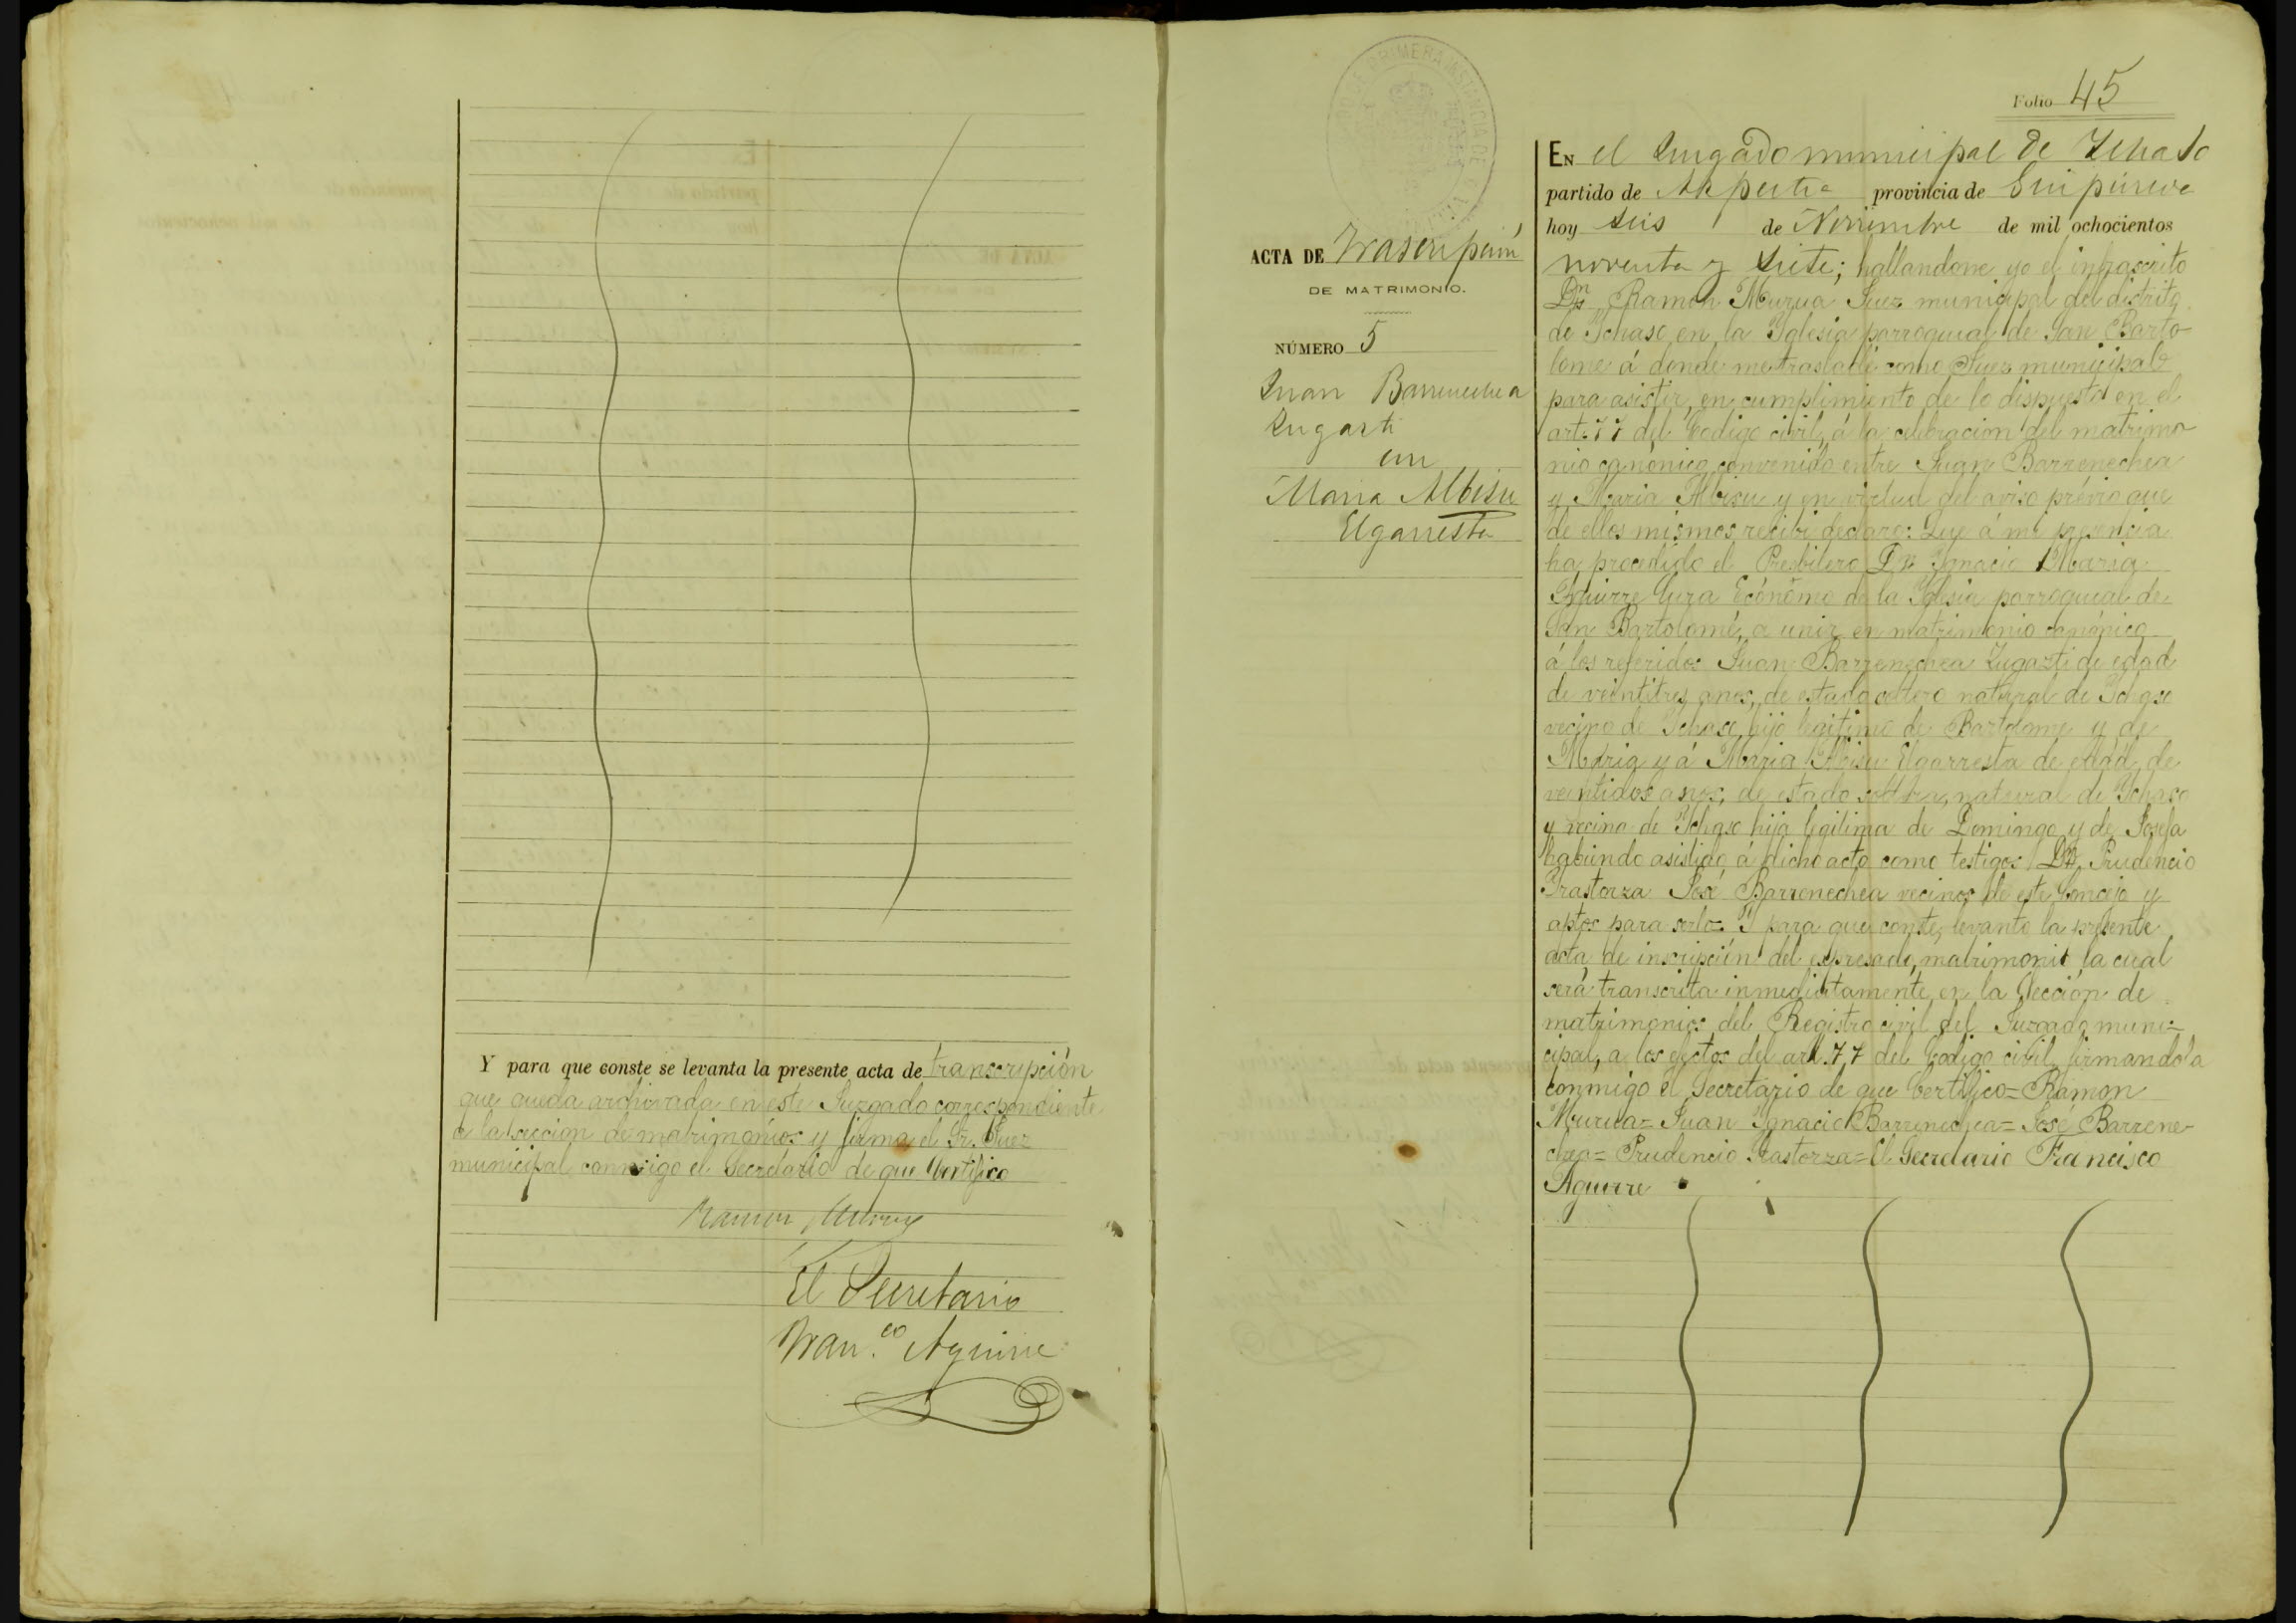 Y para que conste se levanta la presente acta de transcripción
que queda archivada en este Juzgado correspondiente
a la seccion de matrimonios y firma el Sr. Juez
municipal conmigo el Secretario de que Certifico
Ramon Murua
El Secretario
Fran.co Aguirre
Folio 45
ACTA DE Trascripcion
DE MATRIMONIO.
NÚMERO 5
Juan Barrenechea
Lugasti
con
Maria Albisu
Elgarresta
En el Juzgado municipal de Ichaso
partido de Azpeitia provincia de Guipúzcoa
hoy seis de Noviembre de mil ochocientos
noventa y siete; hallandone yo el infrascrito
Dn Ramon Murua Juez municipal del distrito
de Ychaso en la Yglesia parroquial de San Barto-
lome á donde me trasladé como Juez municipal
para asistir, en cumplimiento de lo dispuesto en el
art. 77 del Codigo civil, á la celebracion del matrimo
nio canónico convenido entre Juan Barrenechea
y Maria Albisu y en virtud del aviso prévio que
de ellos mismos recibi declaro: Que á mi presencia
ha procedido el Presbitero Dn Ygnacio Maria
Aguirre Cura Ecónomo de la Yglesia parroquial de
San Bartolomé, a unir en matrimonio canonico
á los referidos Juan Barrenechea Lugazti de edad
de veintitres anos, de estado soltero natural de Ychaso
vecino de Ychaso hijo legitimo de Bartolome y de
Maria y á Maria Albisu Elgarresta de edad de
veintidos anos, de estado soltera, natural de Ychaso
y vecina de Ychaso hija legitima de Domingo y de Josefa
habiendo asistido á dicho acto como testigos Dn Prudencio
Yrastorza José Barrenechea vecinos de este Concejo y
aptos para serlo= Y para que conste, levanto la presente
acta de inscripción del expresado, matrimonio la cual
será transcrita inmediatamente en la Sección de
matrimonios del Registro civil del Juzgado muni-
cipal, a los efectos del art. 77 del Codigo civil firmandola
conmigo el Secretario de que Certifico= Ramon
Murua= Juan Ygnacio Barrenechea= José Barrene-
chea= Prudencio Yrastorza= El Secretario Francisco
Aguirre